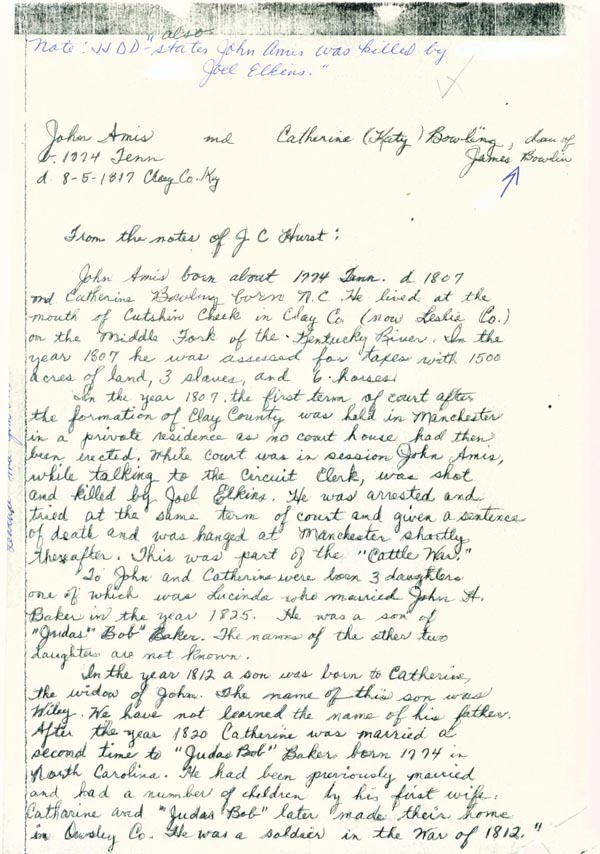 also
Note: JJDD - "states John Amis was killed by
Joel Elkins."
John Amis md Catherine (Katy) Bowling, dau of
b. 1774 Tenn James Bowlin
d. 8-5-1817 Clay Co. Ky
From the notes of J C Hurst:
John Amis born about 1774 Tenn. d 1807
md Catherine Bowling born N.C. He lived at the
mouth of Cutshin Cheek in Clay Co (now Leslie Co.)
on the Middle Fork of the Kentucky River. In the
year 1807 he was assessed for taxes with 1500
acres of land, 3 slaves, and 6 horses.
In the year 1807, the first term of court after
the formation of Clay County was held in Manchester
in a private residence as no court house had then
been erected. While court was in session John Amis,
while talking to the Circuit Clerk, was shot
and killed by Joel Elkins. He was arrested and
tried at the same term of court and given a sentence
of death and was hanged at Manchester shortly
thereafter. This was part of the "Cattle War."
To John and Catherine were born 3 daughters
one of which was Lucinda who married John H.
Baker in the year 1825. He was a son of
"Judas" Bob" Baker. The names of the other two
daughters are not known.
In the year 1812 a son was born to Catherine,
the widow of John. The name of this son was
Wiley. We have not learned the name of his father.
After the year 1820 Catherine was married a
second time to "Judas Bob" Baker born 1774 in
North Carolina. He had been previously married
and had a number of children by his first wife.
Catharine and "Judas "Bob" later made their home
in Owsley Co. He was a soldier in the War of 1812."